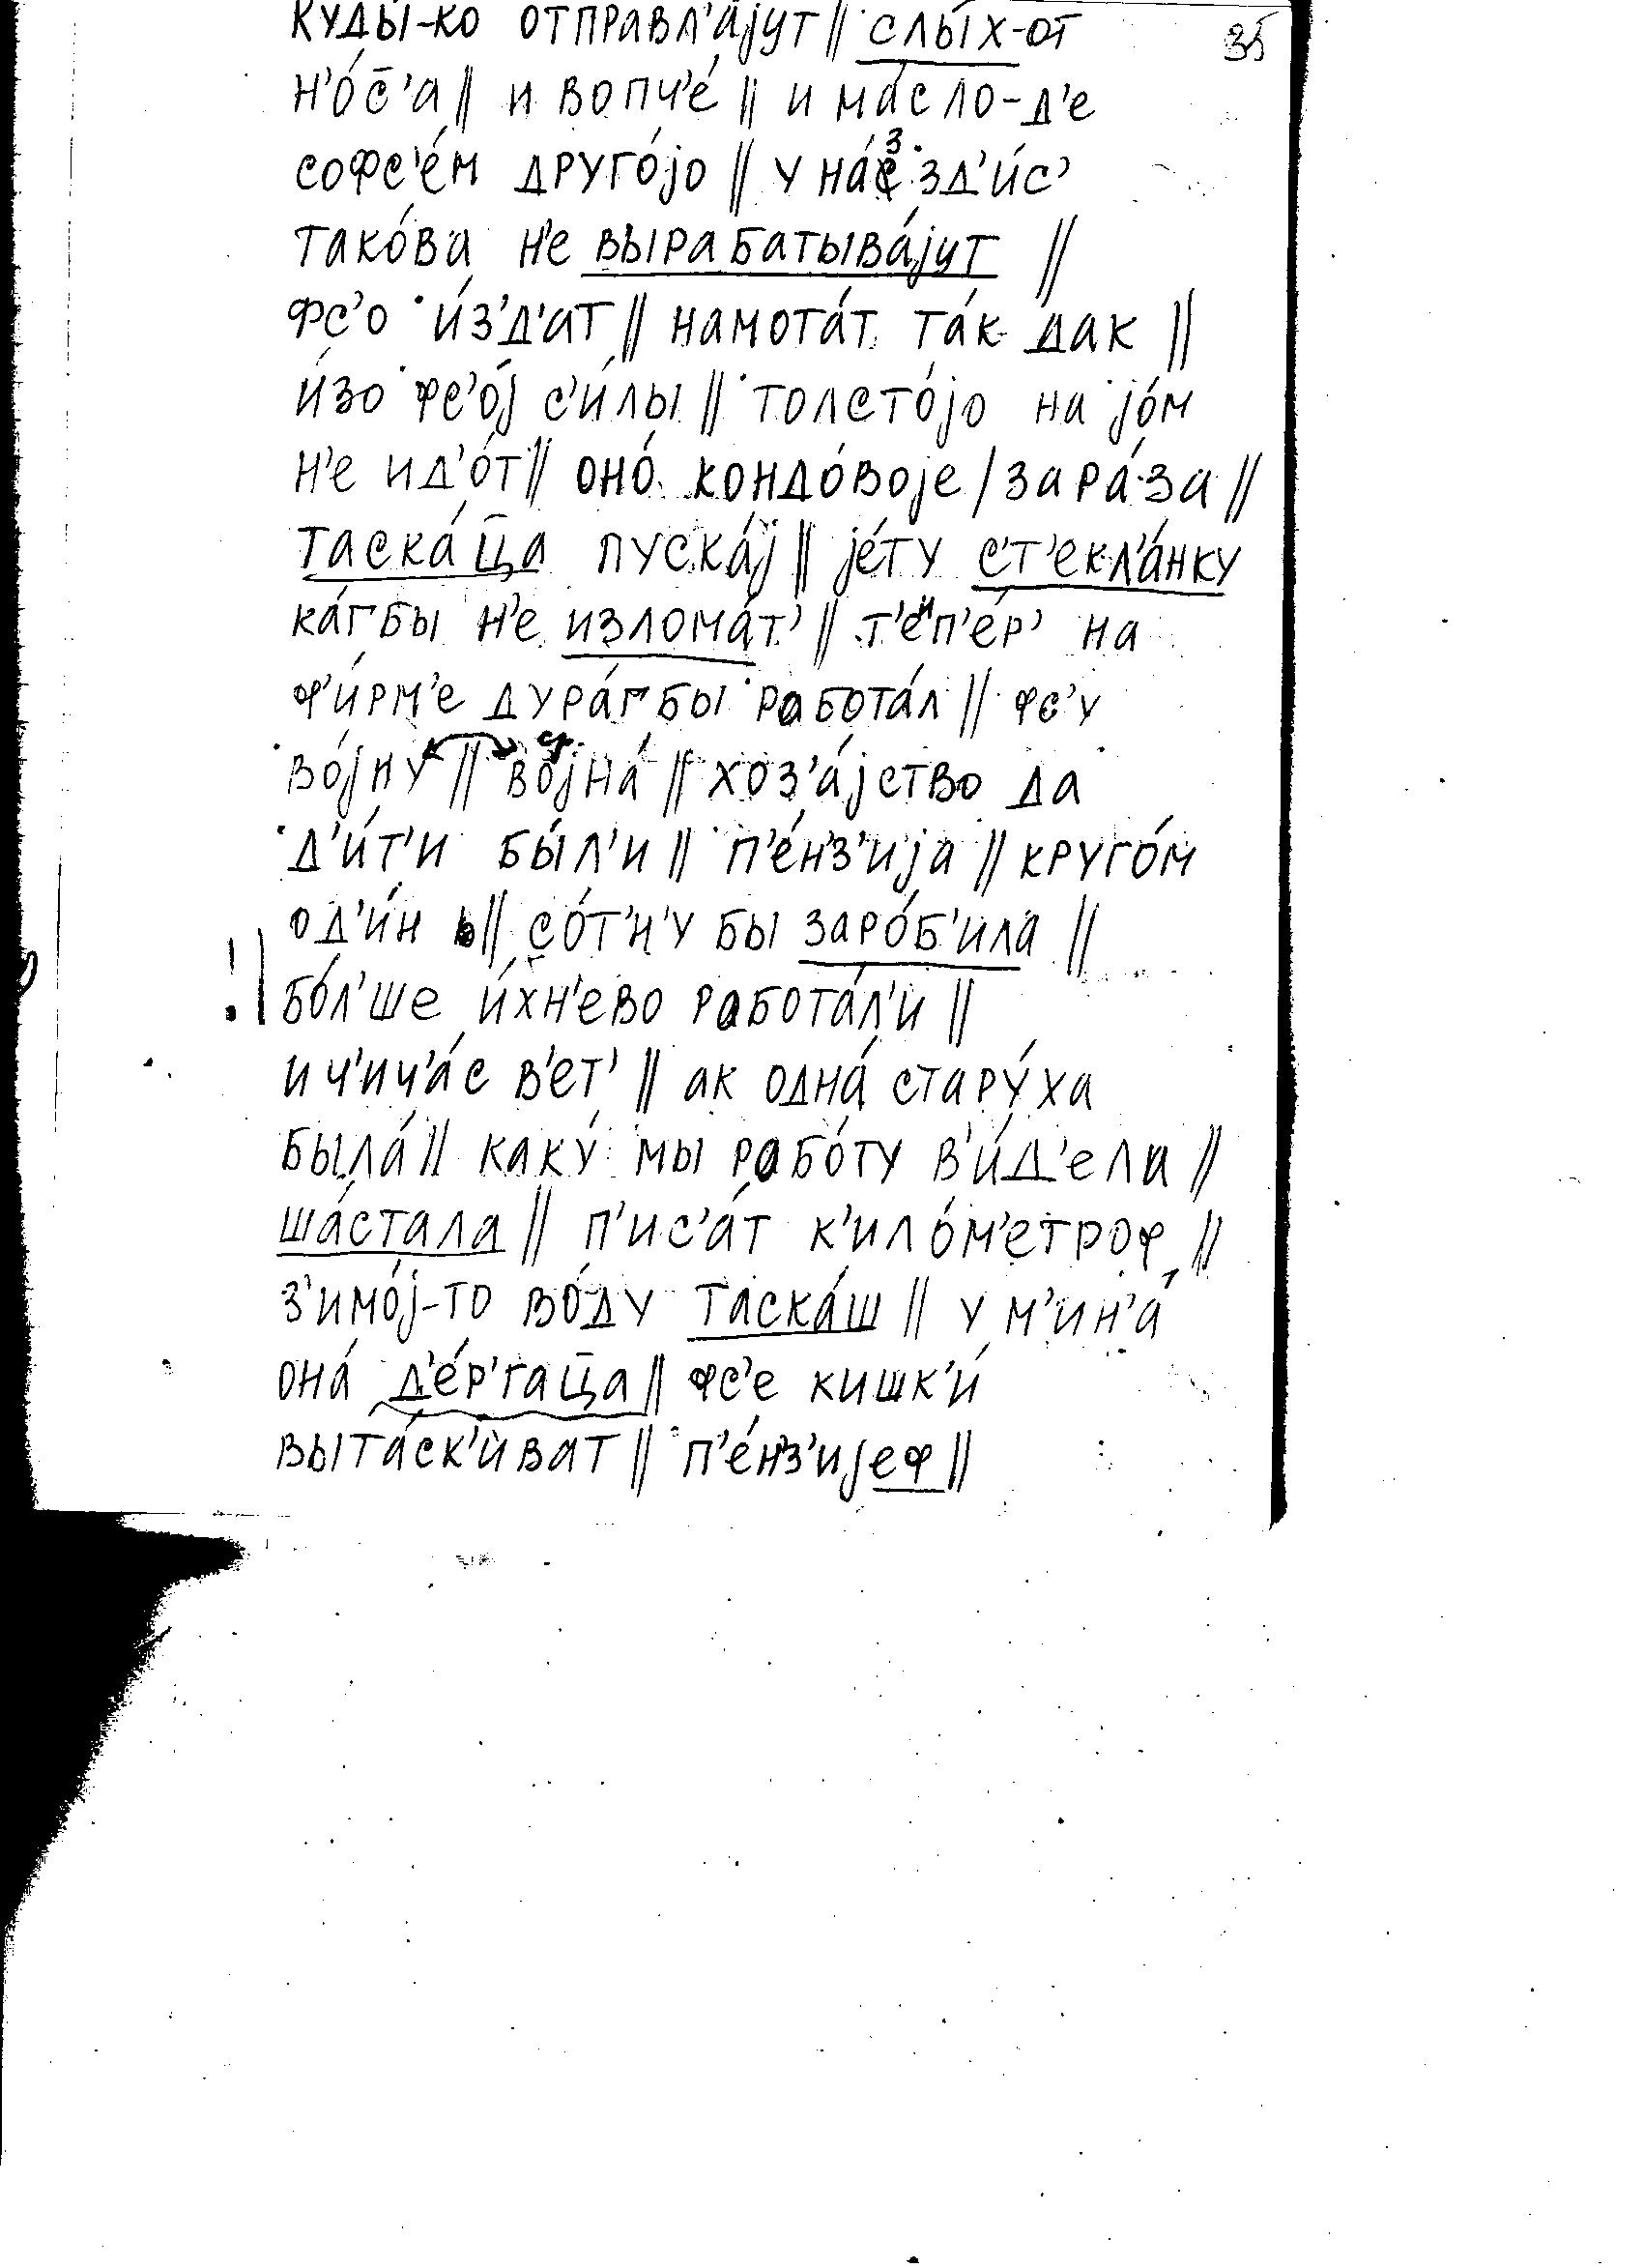 куды́-ко отправл'а́јут // слы́х-от 35
н'о́с̄'а // и вопч'е́ // и ма́сло-д'е
софс'е́м друго́јо // у на́с з зд'и́с'
тако́ва н'е вырабатыва́јут //
фс'о и́з'д'ат // намота́т та́к дак //
и́зо фс'о́ј с'и́лы // толсто́јо на јо́м
н'е ид'о́т // оно́ кондо́воје / зара́за //
таска́ц̄а пуска́ј // је́ту с'т'екл'а́нку
ка́гбы н'е излома́т' // т'е́ип'е́р' на
ф'и́рм'е дура́гбы работа́л // фс'у
во́јну // ср. војна́ // хоз'а́јство да
д'и́т'и бы́л'и // п'е́н'з'ија // круго́м
од'и́н // со́т'н'у бы заро́б'ила //
! бо́л'ше и́хн'ево работа́л'и //
и ч'ич'а́с в'ет' // ак одна́ стару́ха
была́ // каку́ мы рабо́ту в'и́д'ели //
ша́стала // п'ис'а́т к'ило́м'етроф //
з'имо́ј-то во́ду таска́ш // у м'ин'а́
она́ д'е́р'гац̄а // фс'е кишк'и́
выта́ск'иват // п'е́н'з'ијеф //